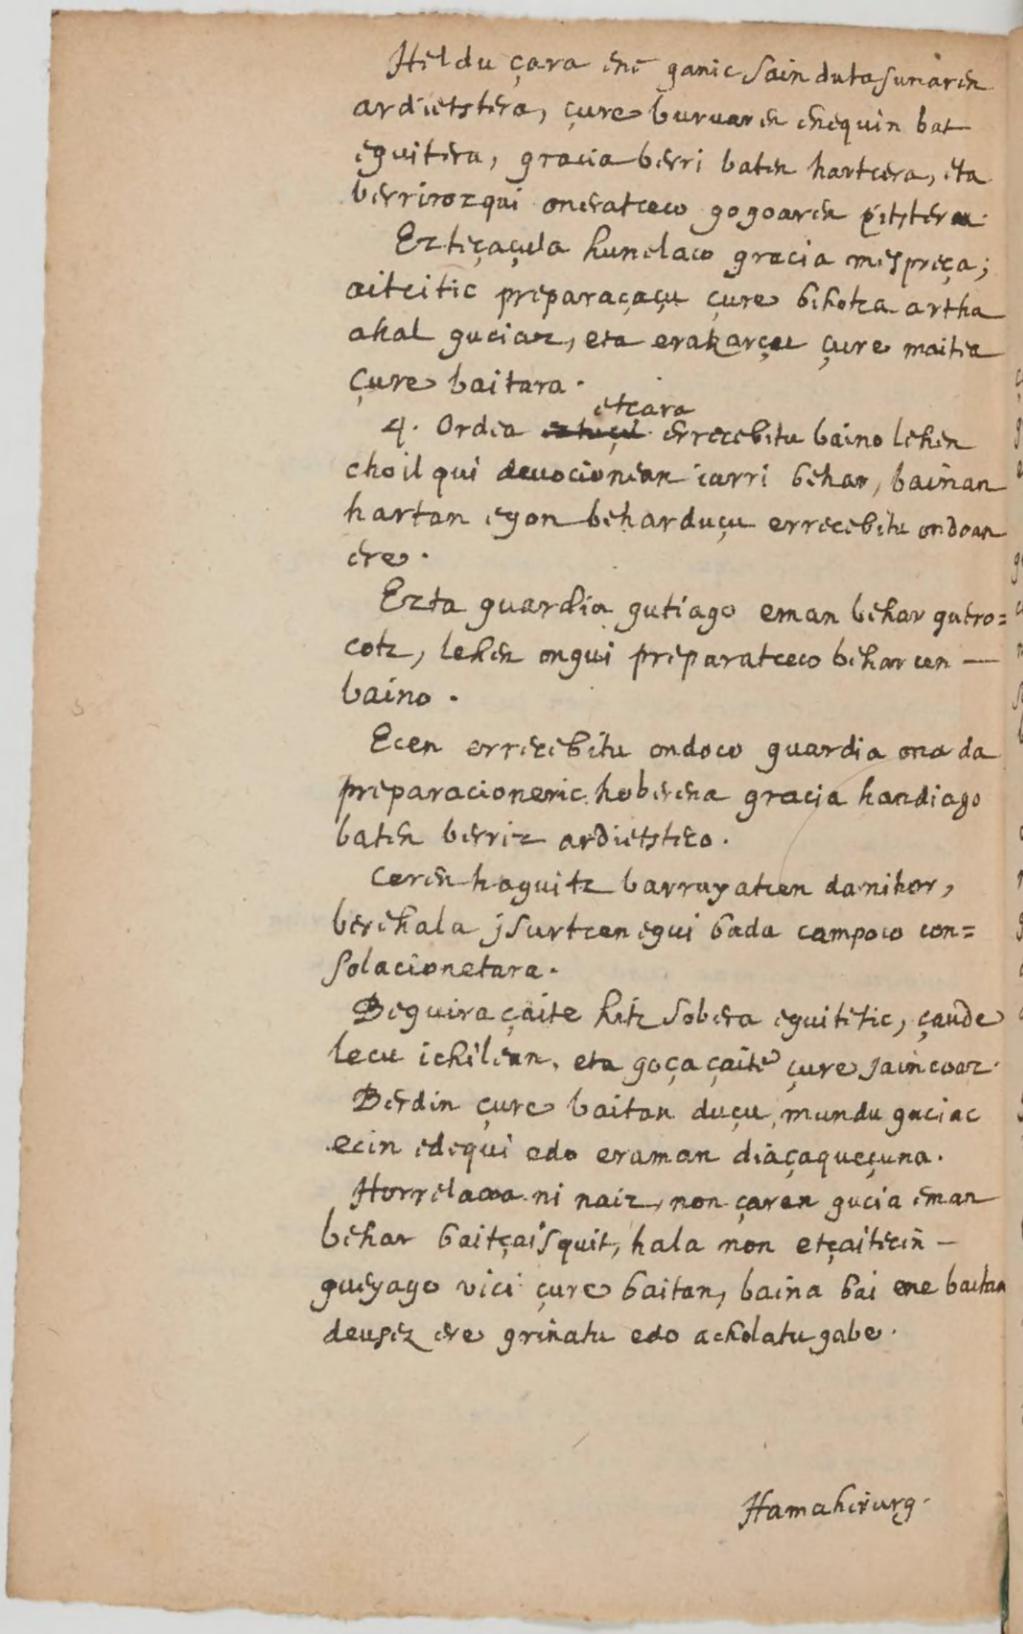 Heldu çara ene ganic Sainduta sunaren
ardietstera, çure buruaren enequin bat
eguitera, gracia berri baten hartcera, eta
berriroz qui oneratceco gogoaren pitztera.
Ezteçaçula hunelaco gracia mespreça;
aitcitic preparaçaçu çure bihotza artha
ahal guciaz, eta erakarçu çure maitea
çure baitara.
etçara
4. Ordea errecebitu baino lehen
choil qui deuocionean iarri behar, bainan
hartan egon behar duçu errecebitu ondoan
ere.
Ezta guardia gutiago eman behar guero=
cotz, lehen ongui preparatceco behar cen —
baino.
Ecen errecebitu ondoco guardia ona da
preparacioneric hoberena gracia handiago
baten berriz ardietsteco.
Ceren haguitz barrayatcen da nihor,
berehala jsurtcen egui bada campoco con=
solacionetara.
Beguira çaite hitz sobera eguitetic, çaude
lecu ichilean, eta goça çaite çure Jaincoaz.
Berdin çure baitan duçu, mundu guciac
ecin edequi edo eraman diaçaqueçuna.
Horrelacoa ni naiz, non çaren gucia eman
behar baitçaisquit, hala non etçaitecin —
gueyago vici çure baitan, baina bai ene baitan
deusez ere grinatu edo acholatu gabe.
Hamaheirurg.